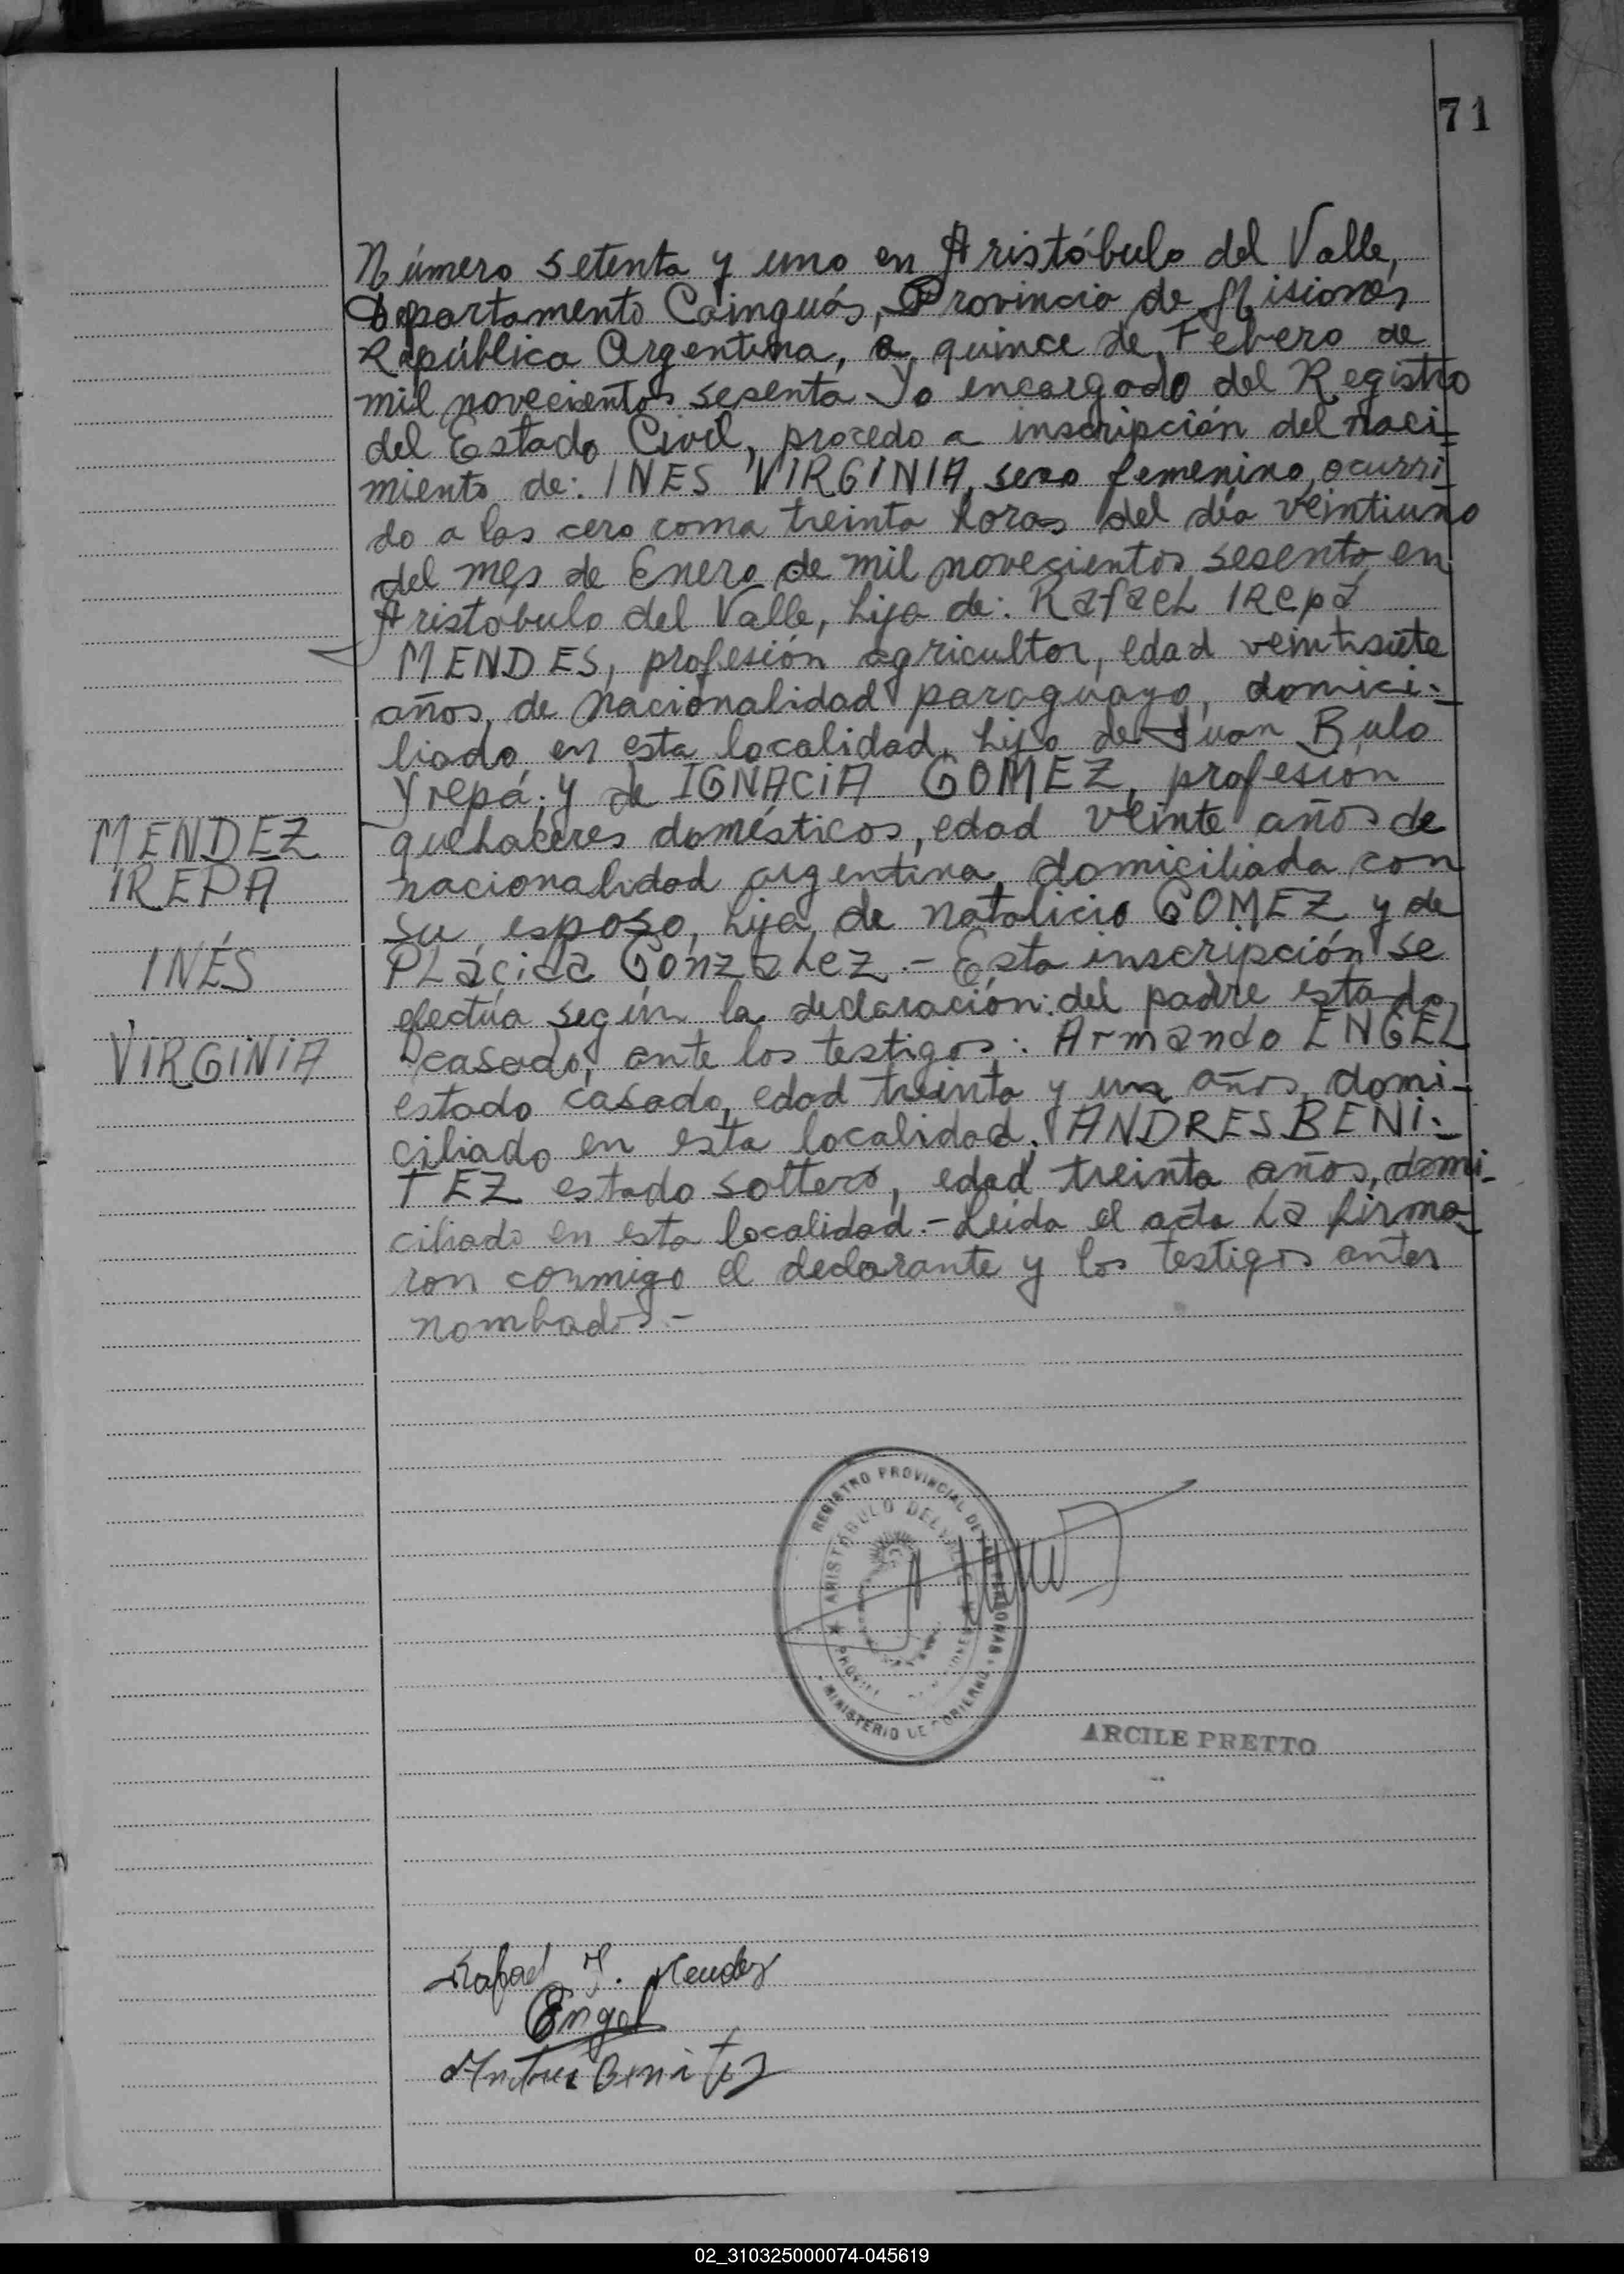 71
Número setenta y uno en Aristóbulo del Valle,
Departamento Cainguás, Provincia de Misiones
República Argentina, a quince de Febero de
mil novecientos sesenta Yo encargado del Registro
del Estado Civil, procedo a inscripción del naci-
miento de: INES VIRGINIA, sexo femenino, ocurri-
do a las cero coma treinta horas del día veintiuno
del mes de Enero de mil novecientos sesenta en
Aristóbulo del Valle, hija de: Rafael IRepá
MENDES, profesión agricultor, edad veintisiete
años, de nacionalidad paraguayo, domici-
liado en esta localidad, hijo de Juan Bulo
Yrepá; y de IGNACIA GOMEZ, profesion
quehaceres domésticos, edad veinte años de
nacionalidad argentina, domiciliada con
su esposo, hija de natalicio GOMEZ y de
PLácida Gonzalez.- Esta inscripción se
efectúa según la declaración: del padre estado
casado, ante los testigos: Armando ENGEL
estado casado, edad treinta y un años, domi-
ciliado en esta localidad; ANDRES BENI-
TEZ estado soltero, edad treinta años, domi-
ciliado en esta localidad.- Leida el acta La firma-
ron conmigo el declarante y los testigos antes
nombados.-
MENDEZ
IREPA
INÉS
VIRGINIA
REGISTRO PROVINCIAL DE
ARISTÓBULO DEL VALLE
MINISTERIO DE GOBIERNO
ARCILE PRETTO
Rafael Y. Mendez
Engel
Andres Benitez
02_310325000074-045619